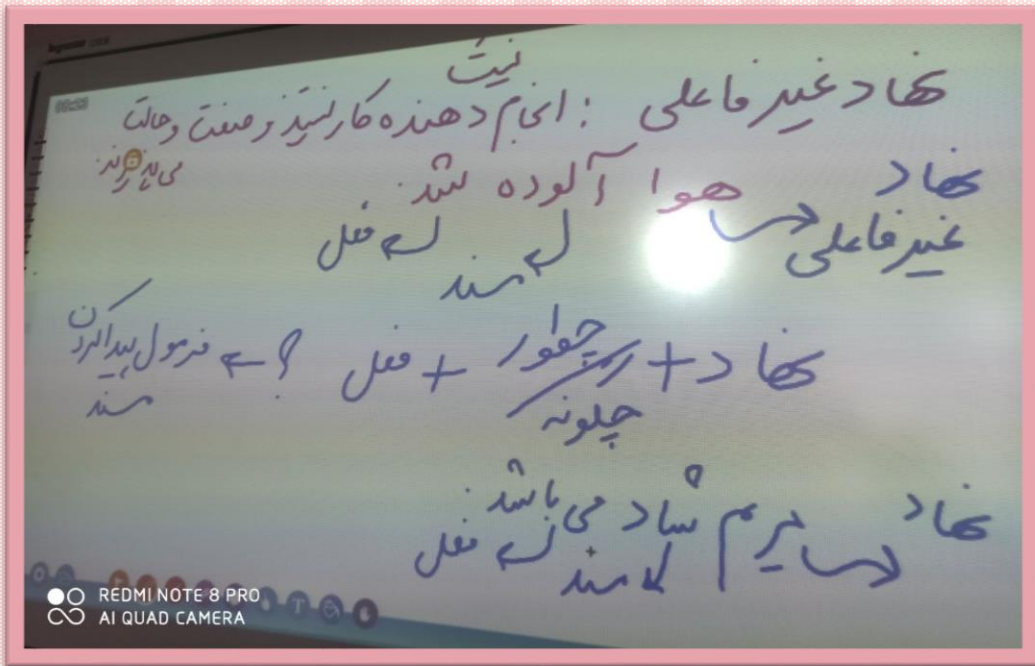 نهاد غیر فاعلی : انجام دهنده کار نیستند و صفت و حالت
می پذیرند.
نهاد هوا آلوده شد.
غیر فاعلی مسند فعل
نهاد + چطور / چگونه + فعل ؟ ← فرمول پیدا کردن
مسند
نهاد مریم شاد می باشد.
مسند فعل
REDMI NOTE 8 PRO
AI QUAD CAMERA